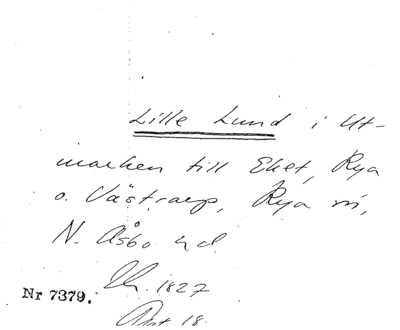 Lille Lund i Ut-
marken till Eket, Rya
o. Västraup, Rya sn,
N. Åsbo hd.
Nr 7379. Ch. 1827
Akt 18.